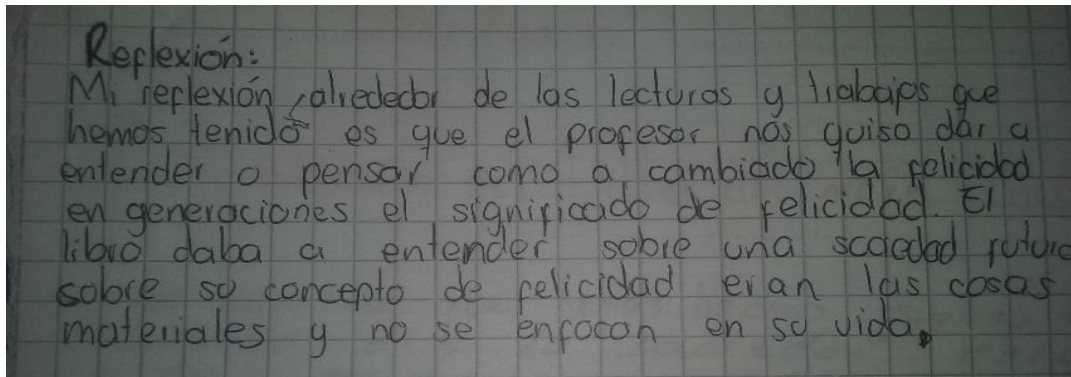 Reflexión:
Mi reflexión, alrededor de las lecturas y trabajos que
hemos tenido es que el profesor nos quiso dar a
entender o pensar como a cambiado la felicidad
en generaciones el significado de felicidad. El
libro daba a entender sobre una sociedad futura
sobre su concepto de felicidad eran las cosas
materiales y no se enfocan en su vida.